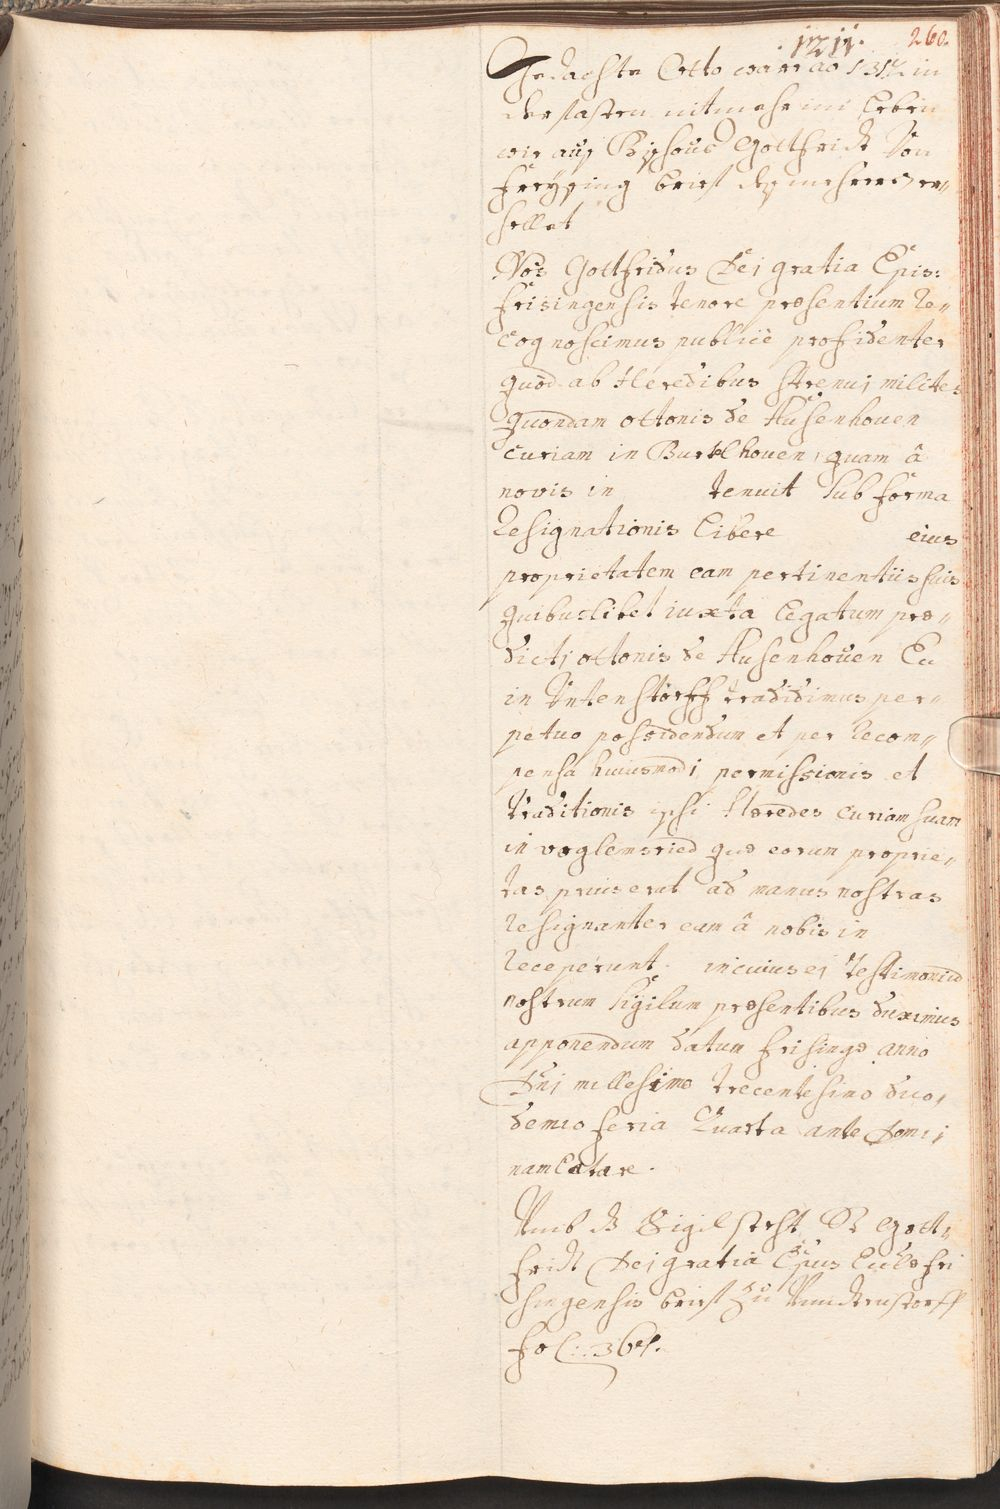 1211. 260.
Gedachte Otto war ao 1312 in
der fasten nit mehr im Leben
wie auß Bischove Gottfridt Von
Freÿsing brief deß mehrers er„
hellet
Nos Gottfridus Dei gratia Epis:
Frisingensis tenore præsentium Re„
cognoscimus publice profidenter
quod ab Heredibus strenui milites
quondam ottonis de Husenhouen
curiam in Burklhouen, quam â
novis in tenuit sub forma
Resignationis libere eius
proprietatem eam pertinentiis suis
quibuslibet iuxta legatum præ„
dicti ottonis de Husenhouen Ec
in Untenstorff tradidimus per„
petuo possidendum et per Recom„
pensa huiusmodi permissionis et
traditionis ipsi Hæredes curiam suam
in voglemsried quæ eorum proprie„
tas prius erat ad manus nostras
resignanter eam â nobis in
Receperunt. in cuius ei testimonium
nostrum sigilum præsentibus duximus
apponendum datum frisingæ anno
Dni millesimo trecentesimo duo„
demio feria Quarta ante Domi„
nam Lætare.
Umb dz Sigil steht S: Gott„
fridt Dei gratia Epus Ecclæ fri
singensis brief zu Undenstorff
fol: 361.